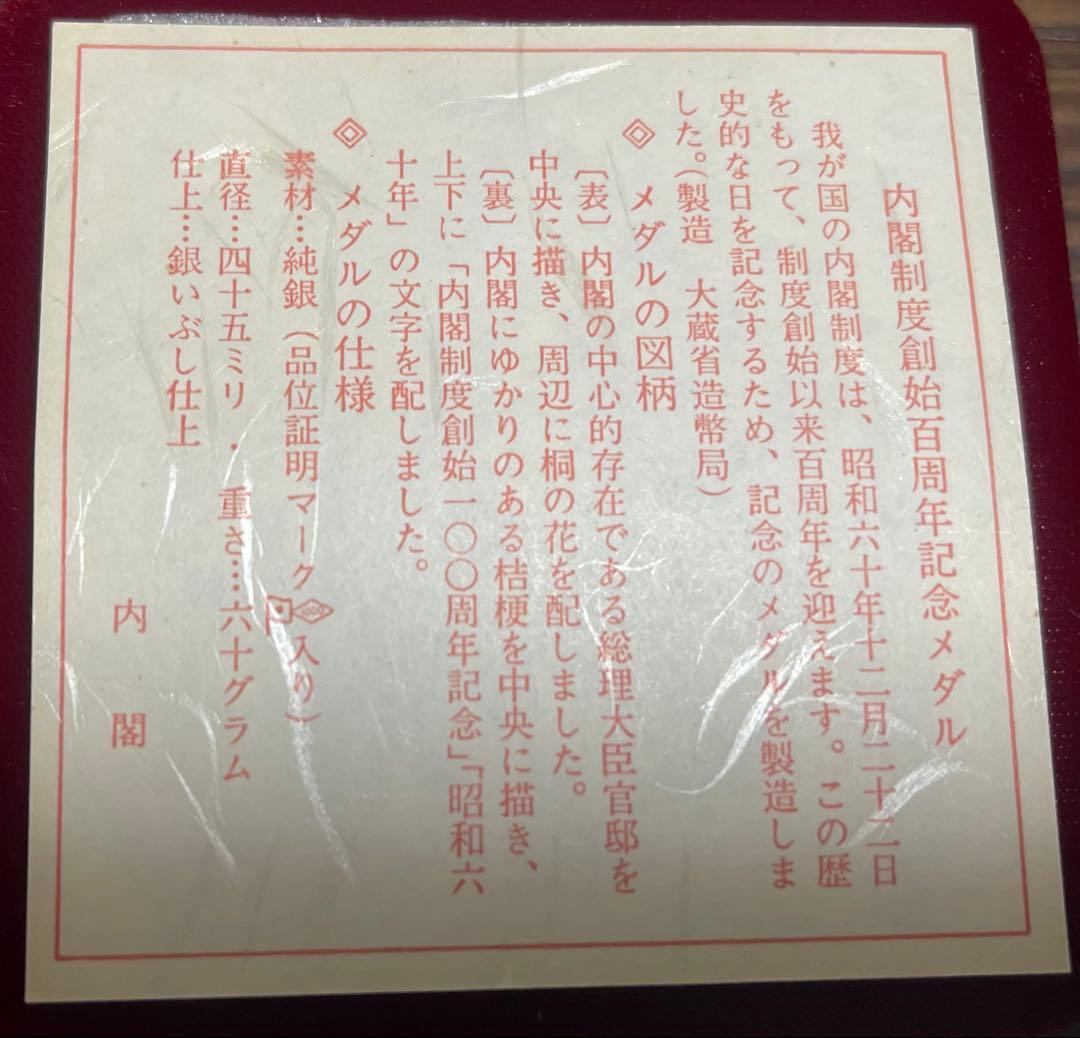 内閣制度創始百周年記念メダル
我が国の内閣制度は、昭和六十年十二月二十二日
をもって、制度創始以来百周年を迎えます。この歴
史的な日を記念するため、記念のメダルを製造しま
した。(製造 大蔵省造幣局)
◎ メダルの図柄
〔表〕 内閣の中心的存在である総理大臣官邸を
中央に描き、周辺に桐の花を配しました。
〔裏〕 内閣にゆかりのある桔梗を中央に描き、
上下に「内閣制度創始一〇〇周年記念」「昭和六
十年」の文字を配しました。
◎ メダルの仕様
素材…純銀(品位証明マーク 1000 入り)
直径…四十五ミリ・重さ…六十グラム
仕上…銀いぶし仕上
内閣